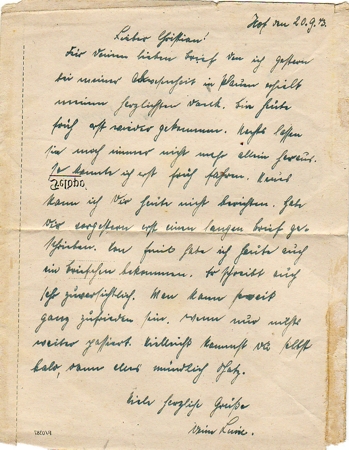 Hof den 20.9.
Lieber Christian!
Für Deinen lieben Brief den ich gestern
bei meiner Abwesenheit in Plauen erhielt
meinen herzlichsten Dank. Bin heute
früh erst wieder gekommen. Nachts lassen
sie noch immer nicht mehr allein heraus.
So konnte ich erst früh fahren.
kann ich Dir heute nicht berichten. Habe
Dir vorgestern erst einen langen Brief ge-
schrieben. Von habe ich heute auch
ein Briefchen bekommen. Er schreibt auch
sehr zuversichtlich. Man kann soweit
ganz zufrieden sein. wenn nur nichts
weiter passiert. Vielleicht kommst Du selbst
bald, dann alles mündlich
Viele herzliche Grüße